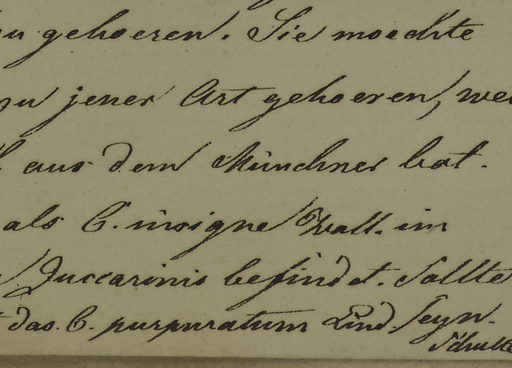 zu gehoeren. Sie moechte
zu jener Art gehoeren, wel
aus dem Münchner bot.
als C. insigne Wall. im
Zuccarinis befindet. Sollte
das C. purpuratum Lind. seyn.
Schulte